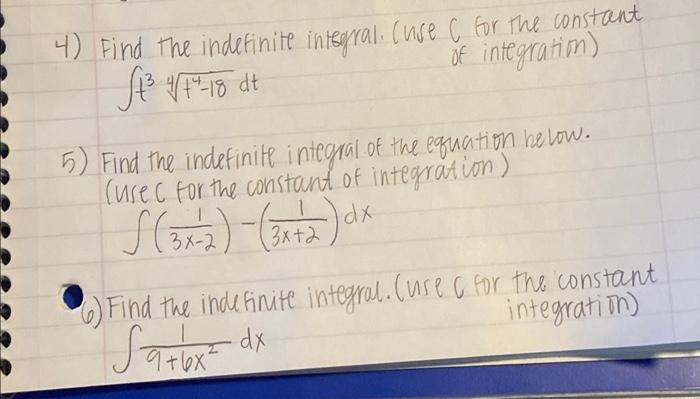 4) Find the indefinite integral. (use C for the constant
of integration)
∫t³ ∜(t⁴-18) dt
5) Find the indefinite integral of the equation below.
(use C for the constant of integration)
∫(1/(3x-2)) - (1/(3x+2)) dx
6) Find the indefinite integral. (use C for the constant
integration)
∫ 1/(9+6x²) dx